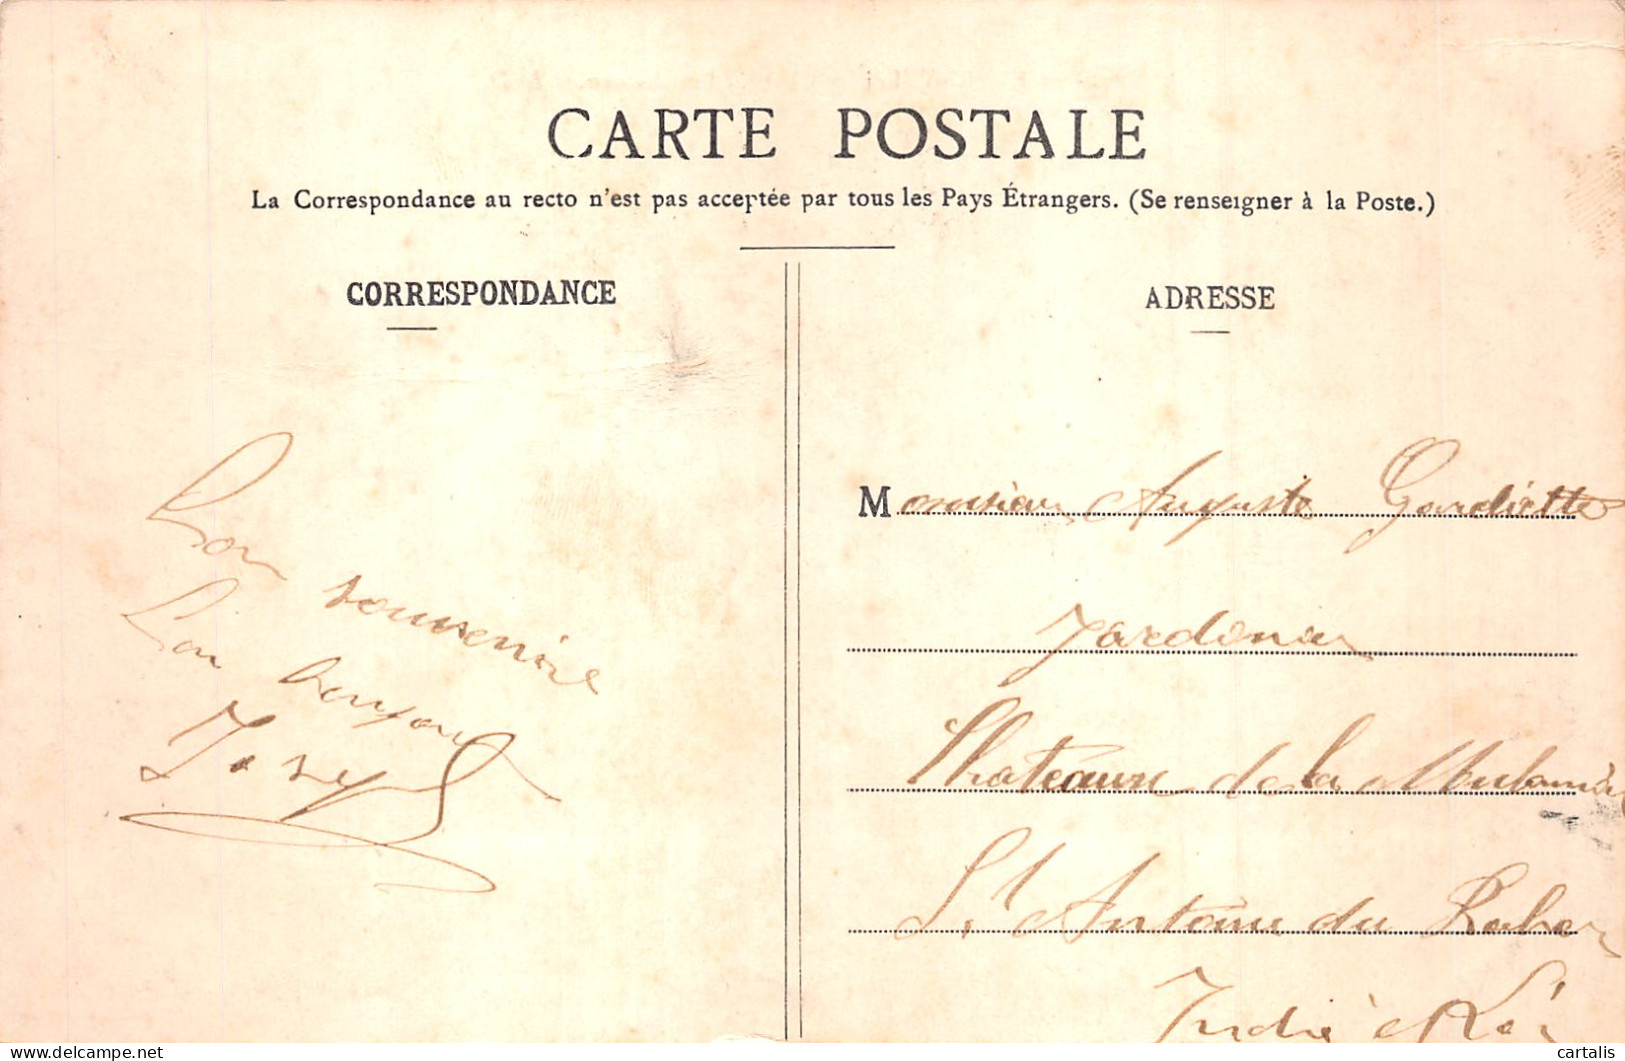 CARTE POSTALE
La Correspondance au recto n'est pas acceptée par tous les Pays Étrangers. (Se renseigner à la Poste.)
CORRESPONDANCE
Bon souvenire
Bon
Joseph
ADRESSE
Monsieur Auguste Gardiette
Jardinier
Chateaux de la
St Antoine du Rocher
Indre et Loi
cartalis